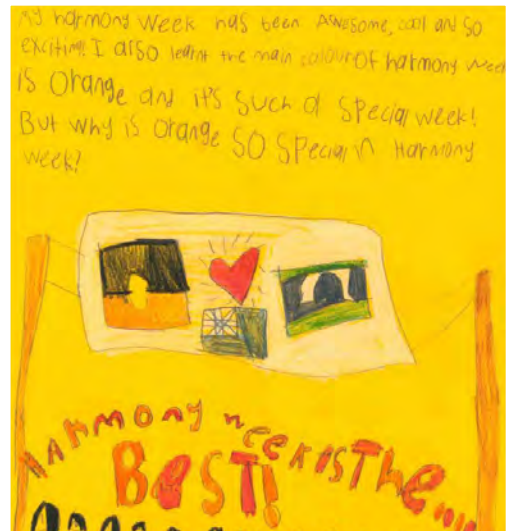 My harmony week has been Awesome, cool and so
exciting! I also learnt the main colour OF harmony week
is Orange and it's such a special week!
But why is orange SO special in Harmony
week?
Harmony week is The...
BEST!